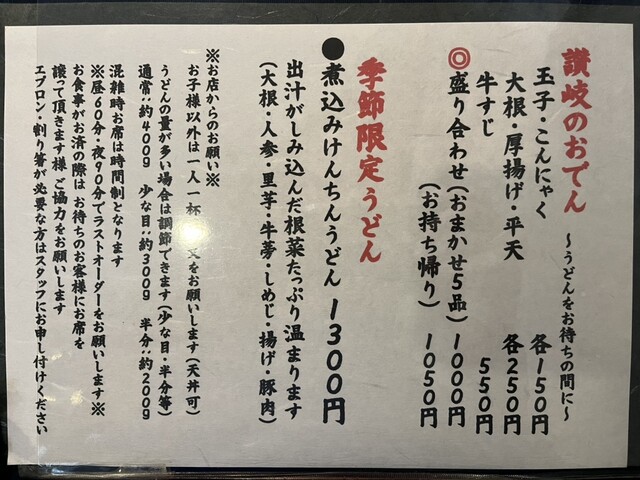 讃岐のおでん ～うどんをお待ちの間に～
玉子・こんにゃく 各150円
大根・厚揚げ・平天 各250円
牛すじ 550円
◎盛り合わせ(おまかせ5品) 1000円
(お持ち帰り) 1050円
季節限定うどん
●煮込みけんちんうどん 1300円
出汁がしみ込んだ根菜たっぷり温まります
(大根・人参・里芋・牛蒡・しめじ・揚げ・豚肉)
※お店からのお願い※
お子様以外は一人一杯 文をお願いします(天丼可)
うどんの量が多い場合は調節できます(少な目・半分等)
通常:約400g 少な目:約300g 半分:約200g
混雑時お席は時間制となります
※昼60分・夜90分でラストオーダーをお願いします※
お食事がお済の際は お待ちのお客様にお席を
譲って頂きます様 ご協力をお願いします
エプロン・割り箸が必要な方はスタッフにお申し付けください